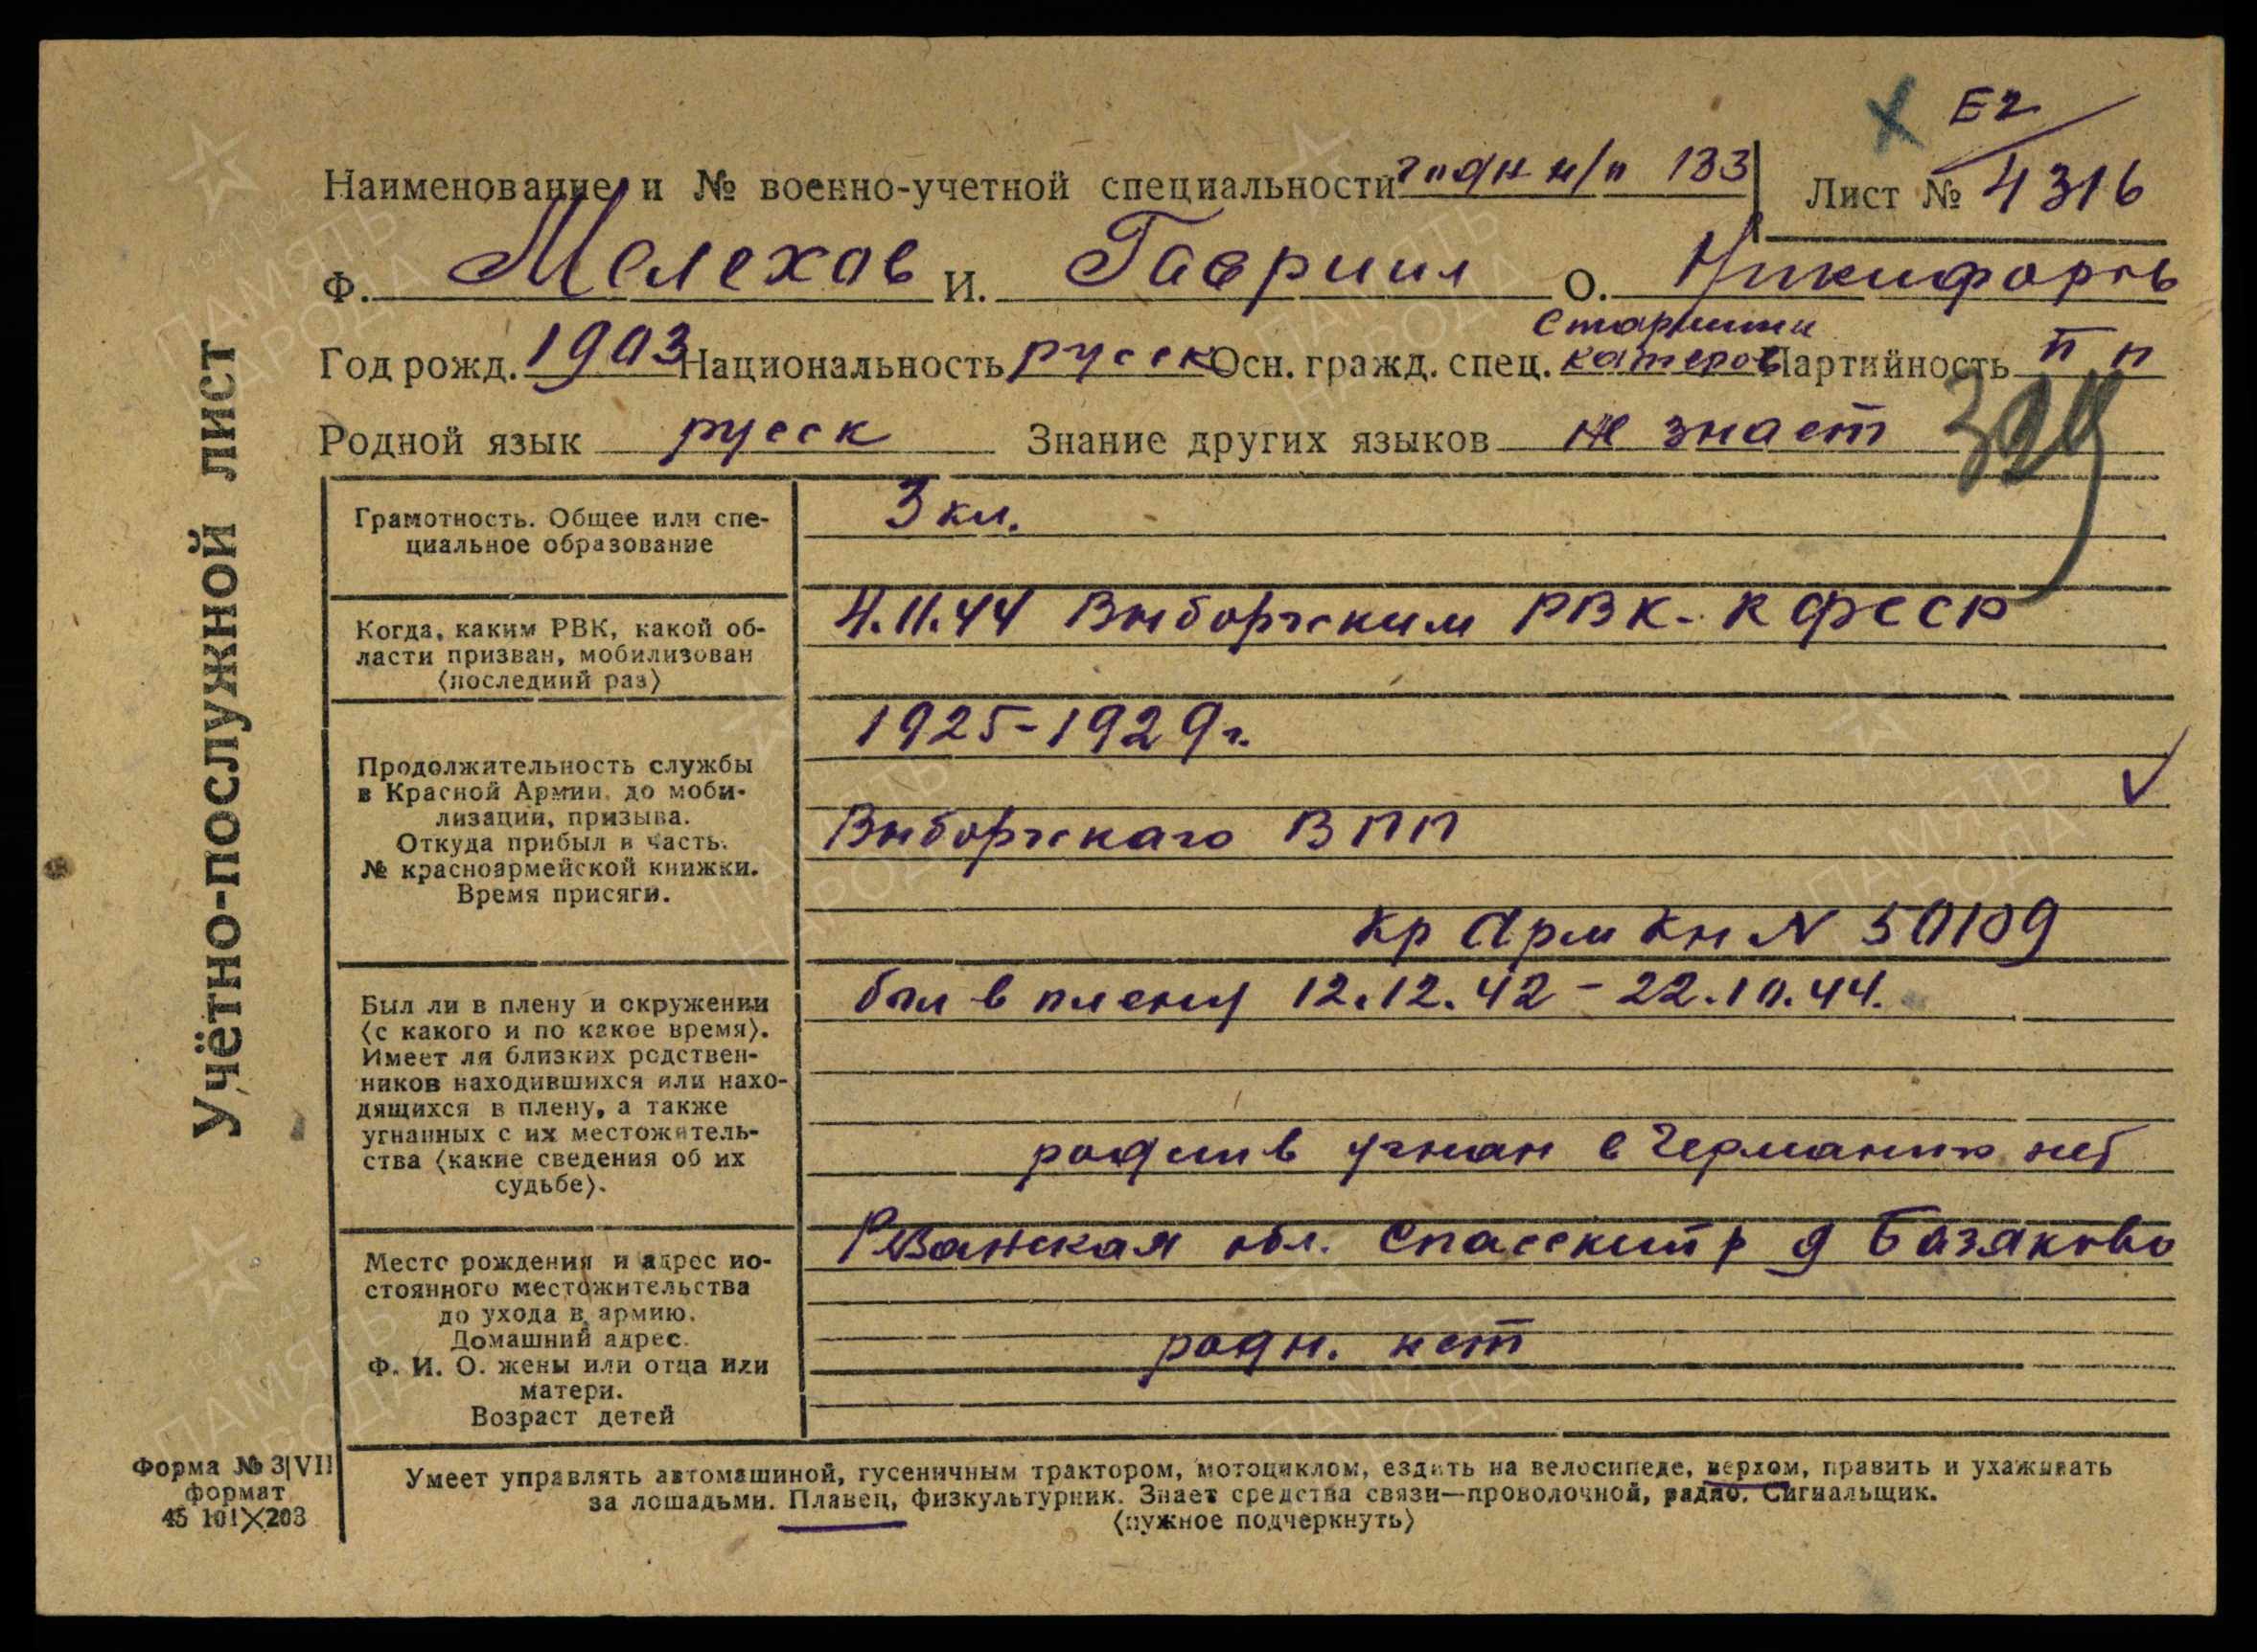 Е2
Наименование и № военно-учетной специальности годн н/п 133 Лист № 4316
Ф. Мелехов И. Гавриил О. Никифоров
Старшина
Год рожд. 1903 Национальность русск Осн. гражд. спец. катеров Партийность
Родной язык русск Знание других языков не знает
Учётно-послужной лист
Грамотность. Общее или спе-
циальное образование
3 кл.
Когда, каким РВК, какой об-
ласти призван, мобилизован
(последний раз)
4.11.44 Выборгским РВК. КФССР
Продолжительность службы
в Красной Армии до моби-
лизации, призыва.
Откуда прибыл в часть.
№ красноармейской книжки.
Время присяги.
1925-1929г.
Выборгского ВПП
Кр Арм Кн N 50109
Был ли в плену и окружении
(с какого и по какое время).
Имеет ли близких родствен-
ников находившихся или нахо-
дящихся в плену, а также
угнанных с их местожитель-
ства (какие сведения об их
судьбе).
был в плену 12.12.42 - 22.10.44.
угнан в Германию нет
Место рождения и адрес по-
стоянного местожительства
до ухода в армию.
Домашний адрес.
Ф. И. О. жены или отца или
матери.
Возраст детей
Рязанская обл. Спасский р д Базяково
родн. нет
Форма № 3|VII
формат
45 101×203
Умеет управлять автомашиной, гусеничным трактором, мотоциклом, ездить на велосипеде, верхом, править и ухаживать
за лошадьми. Плавец, физкультурник. Знает средства связи—проволочной, радио. Сигнальщик.
(нужное подчеркнуть)